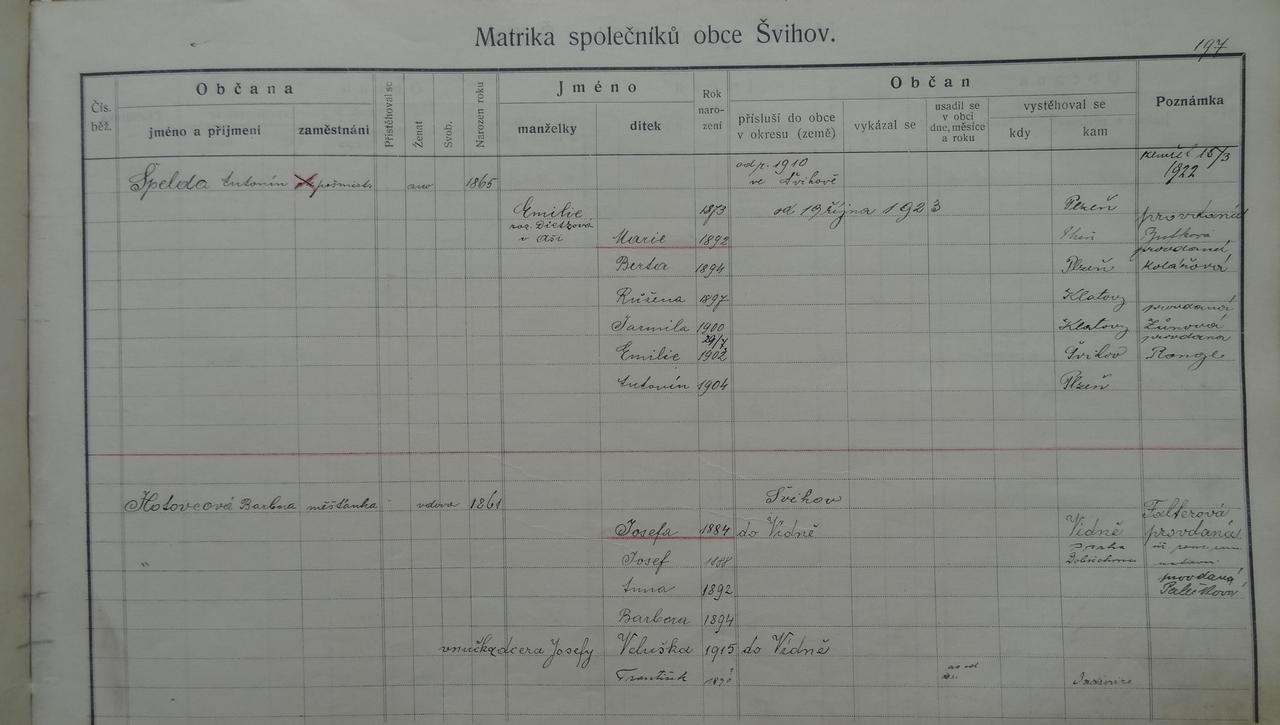 197
Matrika společníků obce Švihov.
Čís. běž.
Občana
jméno a přijmení
zaměstnání
Přistěhoval se
Ženat
Svob.
Narozen roku
Jméno
manželky
dítek
Rok naro-zení
Občan
přísluší do obce v okresu (země)
vykázal se
usadil se v obci dne, měsíce a roku
vystěhoval se
kdy
kam
Poznámka
Špelda Antonín ano 1865 od r. 1910 ve Švihově zemřel 15/3 1922
Emilie 1873 od 19 října 1923 Plzeň
roz. Dietzová
v Aši Marie 1892 provdaná
Berta 1894 Plzeň provdaná Kolářová
Růžena 1897 Klatovy
Jarmila 1900 Klatovy provdaná
29/7
Emilie 1902 Švihov provdaná Range
Antonín 1904 Plzeň
Hotovcová Barbora měšťanka vdova 1861 Švihov
Josefa 1884 do Vídně Vídně Falterová provdaná
" Josef 1888
Anna 1892 provdaná
Barbora 1894
vnučka dcera Josefy Veluška 1915 do Vídně
František